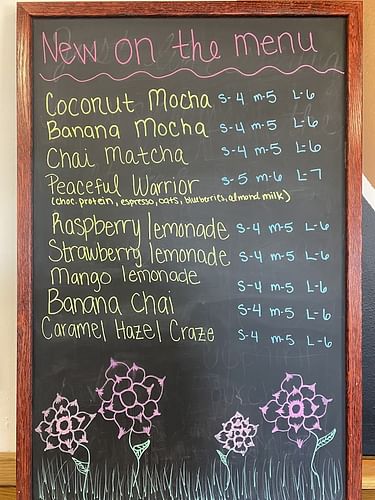 New on the menu
Coconut Mocha S-4 m-5 L-6
Banana Mocha S-4 m-5 L-6
Chai Matcha S-4 m-5 L-6
Peaceful Warrior S-5 m-6 L-7
(choc. protein, espresso, oats, blueberries, almond milk)
Raspberry lemonade S-4 m-5 L-6
Strawberry lemonade S-4 m-5 L-6
Mango lemonade S-4 m-5 L-6
Banana Chai S-4 m-5 L-6
Caramel Hazel Craze S-4 m-5 L-6